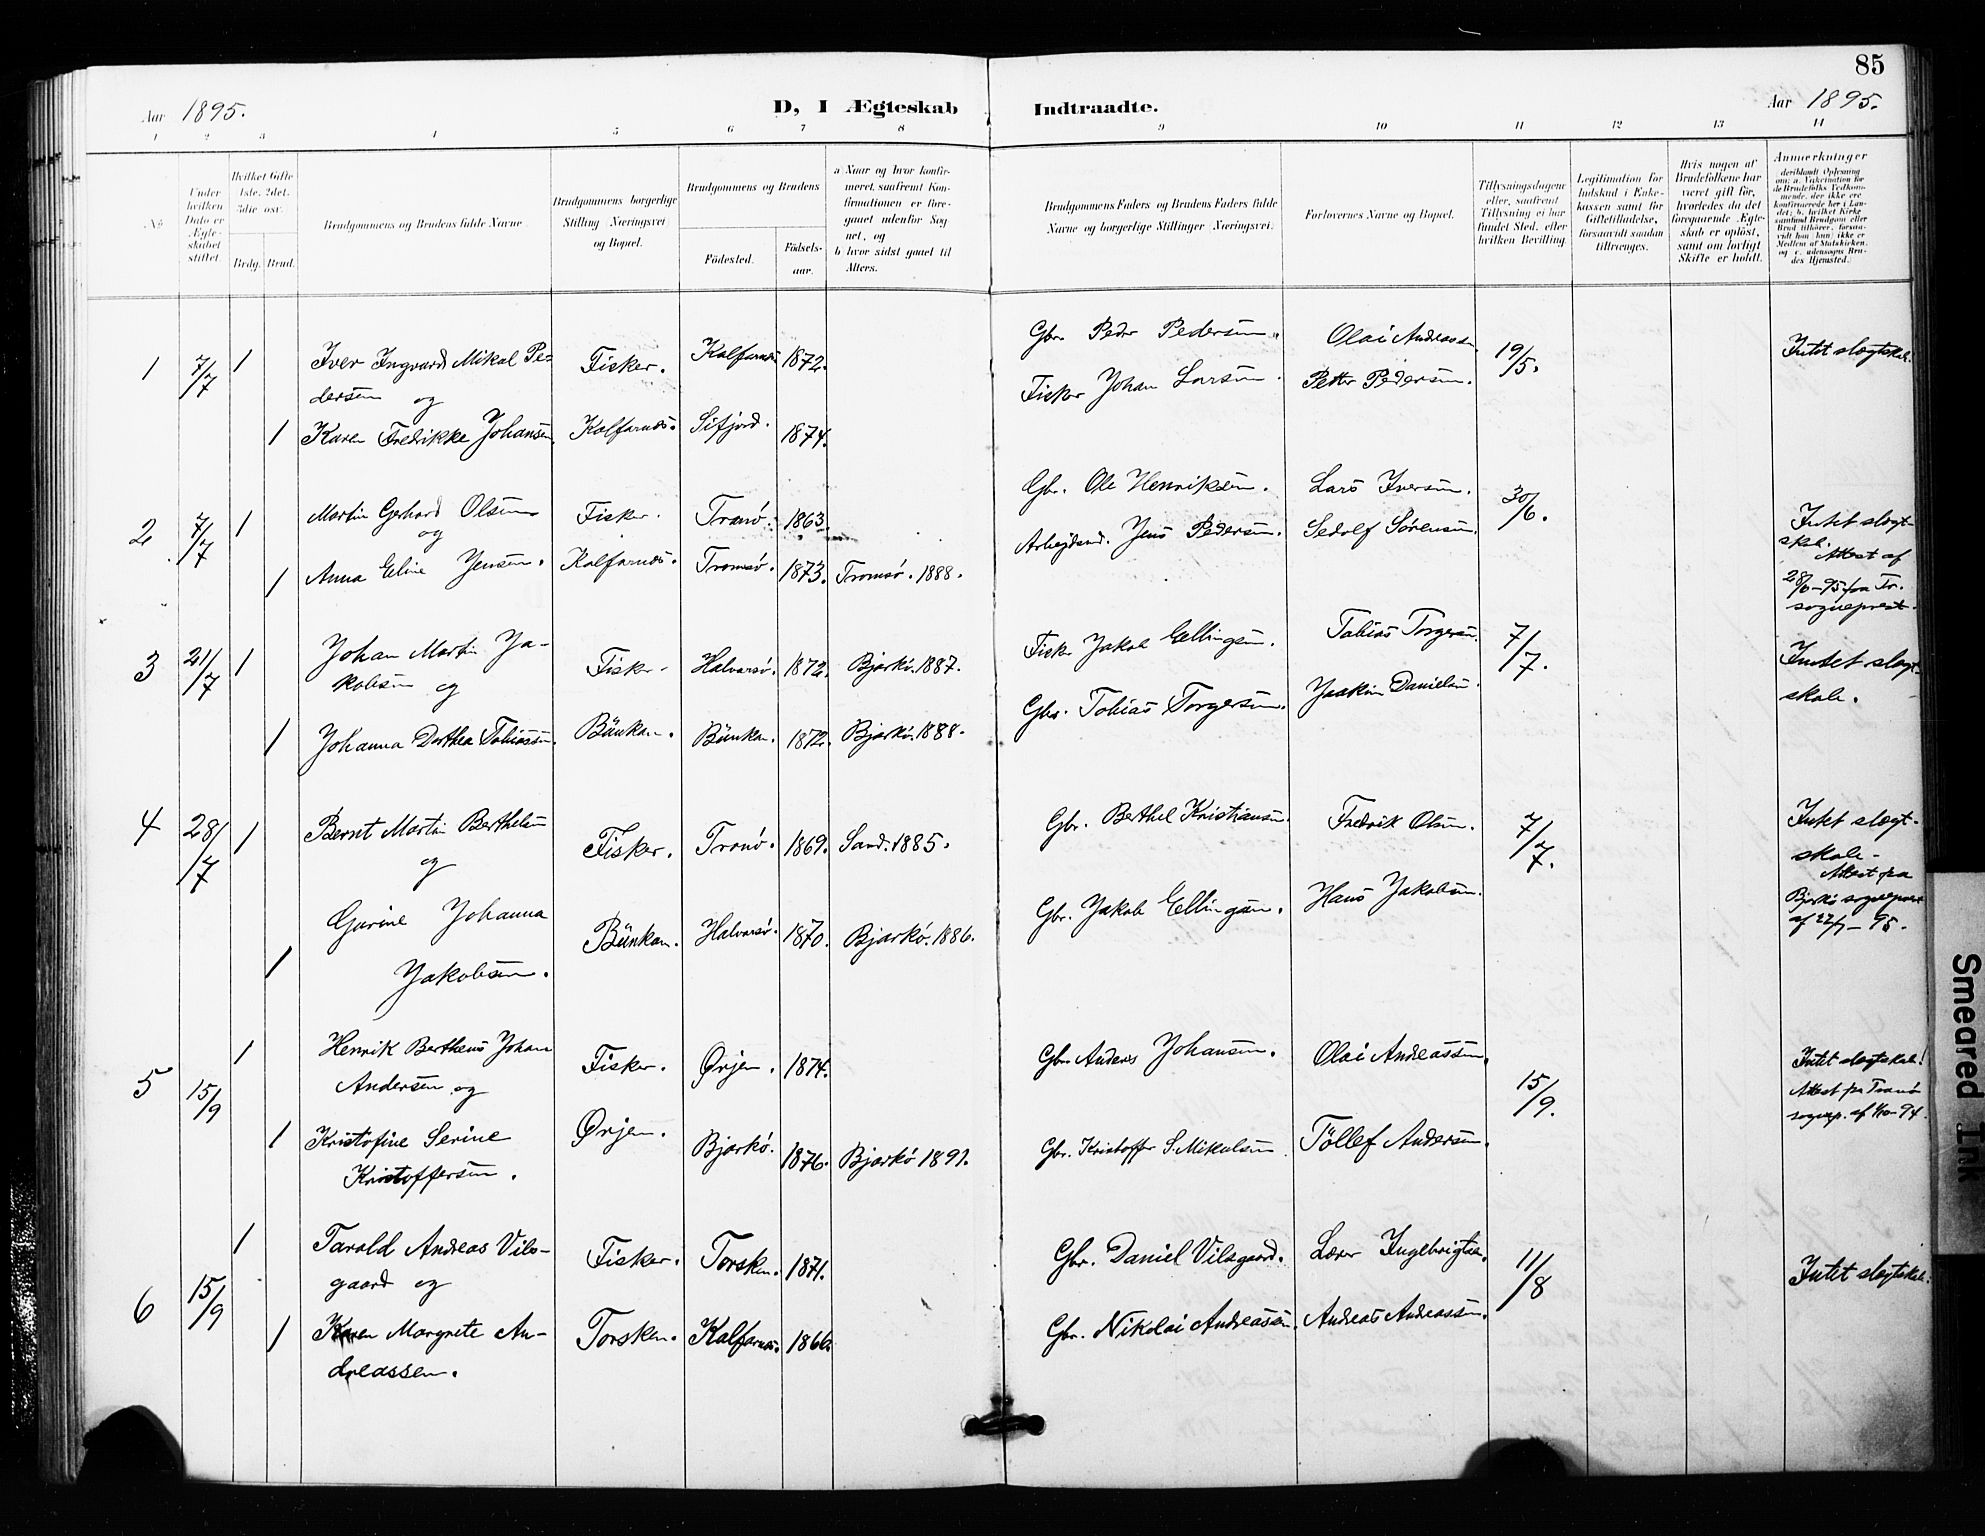 85
Aar 1895.
D, I Ægteskab Indtraadte.
Aar 1895.
1 2 3 4 5 6 7 8 9 10 11 12 13 14
No
Under hvilken Dato er Ægteskabet stiftet.
Hvilket Gifte 1ste. 2det. 3die osv.
Brdg. Brud.
Brudgommens og Brudens fulde Navne.
Brudgommens borgerlige Stilling (Næringsvei) og Bopæl.
Brudgommens og Brudens
Fødested.
Fødselsaar.
a Naar og hvor konfirmeret, saafremt Konfirmationen er foregaaet udenfor Sognet, og
b hvor sidst gaaet til Alters.
Brudgommens Faders og Brudens Faders fulde Navne og borgerlige Stillinger (Næringsvei).
Forlovernes Navne og Bopæl.
Tillysningsdagene eller, saafremt Tillysning ei har fundet Sted, efter hvilken Bevilling.
Legitimation for Indskud i Enkekassen samt for Giftetilladelse, forsaavidt saadan tiltrænges.
Hvis nogen af Brudefolkene har været gift før, hvorledes da det foregaaende Ægteskab er opløst, samt om lovligt Skifte er holdt.
Anmerkninger
deriblandt Oplysning om: a. Vakcination for de Brudefolks Vedkommende, der ikke ere konfirmerede her i Landet; b. hvilket Kirkesamfund Brudgom eller Brud tilhører, forsaavidt han (hun) ikke er Medlem af Statskirken, og c. udensogns Brudes Hjemsted.
1 7/7 1 Iver Ingvard Mikal Pe-
dersen og
Fisker. Kalfarnæs 1872.
Gbr. Peder Pedersen. Olai Andreassen
19/5.
Intet slægtskab.
1 Karen Fredrikke Johansen, Kalfarnæs. Sifjord. 1874.
Fisker Johan Larsen. Petter Pedersen.
2 7/7 1 Martin Gerhard Olsen
og
Fisker. Tranö. 1863.
Gbr. Ole Henriksen. Lars Iversen.
30/6.
Intet slægt-
skab.
Attest af
28/6-95 fra Tr.
sogneprest.
1 Anna Eline Jensen. Kalfarnæs. Tromsø. 1873. Tromsø. 1888.
Arbejdsmd. Jens Pedersen. Sedolf Sørensen.
3 21/7 1 Johan Martin Ja-
kobsen og
Fisker. Halvarsö. 1872. Bjarkö. 1887.
Fisker Jakob Ellingsen. Tobias Torgersen.
7/7.
Intet slægt-
skab.
1 Johanna Dorthea Tobiassen. Bünkan. Bünkan. 1872. Bjarkö. 1888.
Gbr. Tobias Torgersen. Joakim Danielsen.
4 28/7 1 Bernt Martin Berthelsen
og
Fisker. Tranö. 1869. Sand. 1885.
Gbr. Berthel Kristiansen. Fredrik Olsen.
7/7.
Intet slægt-
skab.
Attest fra
Bjarkö sogneprest
af 22/7-95.
1 Gurine Johanna
Jakobsen.
Bünkan. Halvarsö. 1870. Bjarkö. 1886.
Gbr. Jakob Ellingsen. Hans Jakobsen.
5 15/9 1 Henrik Bertheus Johan
Andersen og
Fisker. Ørjen. 1874.
Gbr. Anders Johansen. Olai Andreassen.
15/9.
Intet slægtskab.
Attest fra Tranö
sognep. af 1/10-94.
1 Kristofine Serine
Kristoffersen.
Ørjen. Bjarkö. 1876. Bjarkö 1891.
Gbr. Kristoffer S. Mikalsen Töllef Andersen.
6 15/9 1 Tarald Andreas Vils-
gaard og
Fisker. Torsken. 1871.
Gbr. Daniel Vilsgaard. Lærer Ingebrigtsen.
11/8
Intet slægtskab.
1 Karen Margrete An-
dreassen.
Torsken. Kalfarnæs. 1866.
Gbr. Nikolai Andreassen. Andreas Andreassen.
Smeared Ink